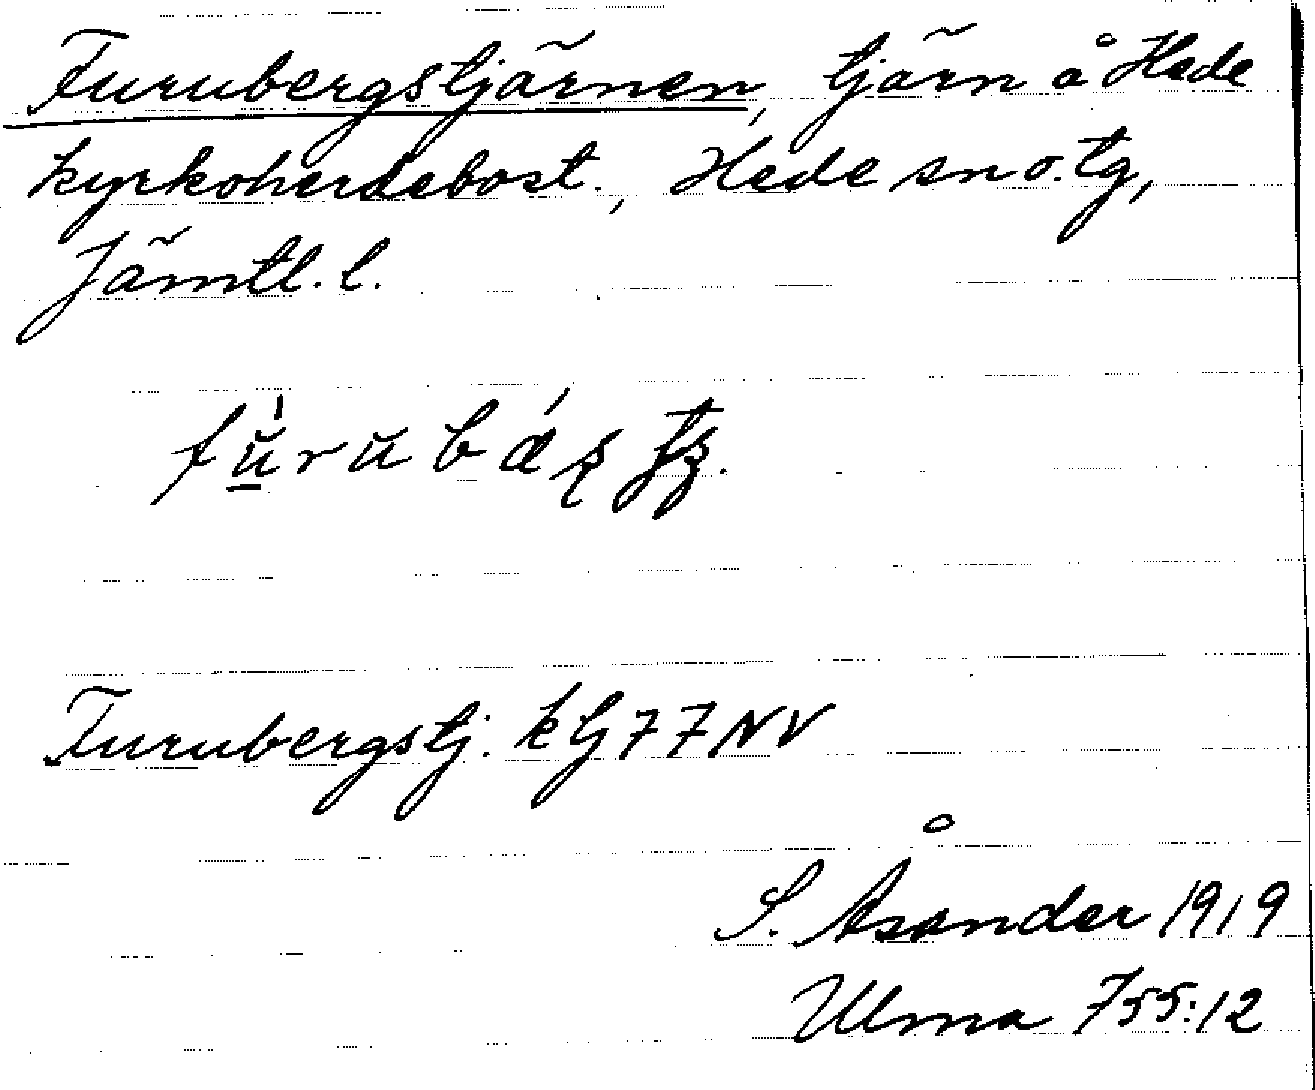 Furubergstjärnen, tjärn å Hede
kyrkoherdebost., Hede sn o. tg,
Jämtl. l.
Furubergstj. kG77NV
S. Åsander 1919
Ulma 755:12